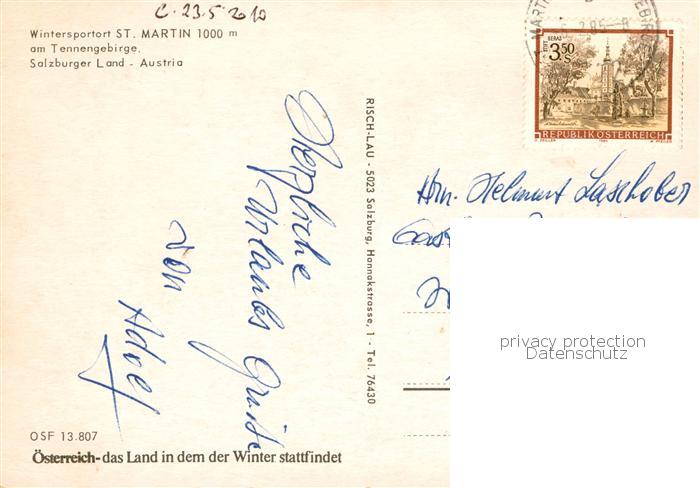 c. 23.5.2010
Wintersportort ST. MARTIN 1000 m
am Tennengebirge.
Salzburger Land - Austria
3.50
S
REPUBLIK ÖSTERREICH
RISCH-LAU - 5023 Salzburg, Hannakstrasse, 1 - Tel. 76430
Herzliche
Urlaubs Grüße
von
Hrn. Helmut Laschober
privacy protection
Datenschutz
OSF 13.807
Österreich - das Land in dem der Winter stattfindet